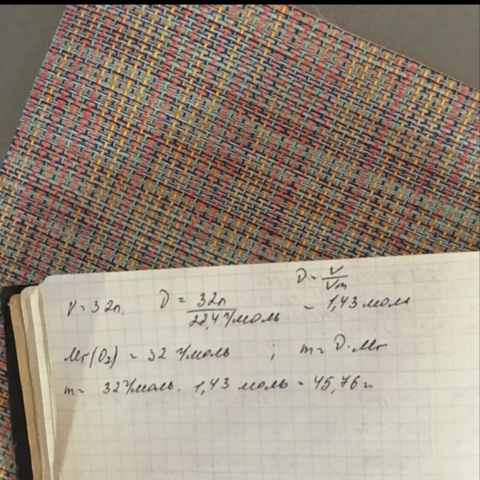 ν = V/Vm
V = 32л. ν = 32л/22,4 л/моль = 1,43 моль
Mr(O2) = 32 г/моль ; m = ν · Mr
m = 32 г/моль · 1,43 моль = 45,76 г